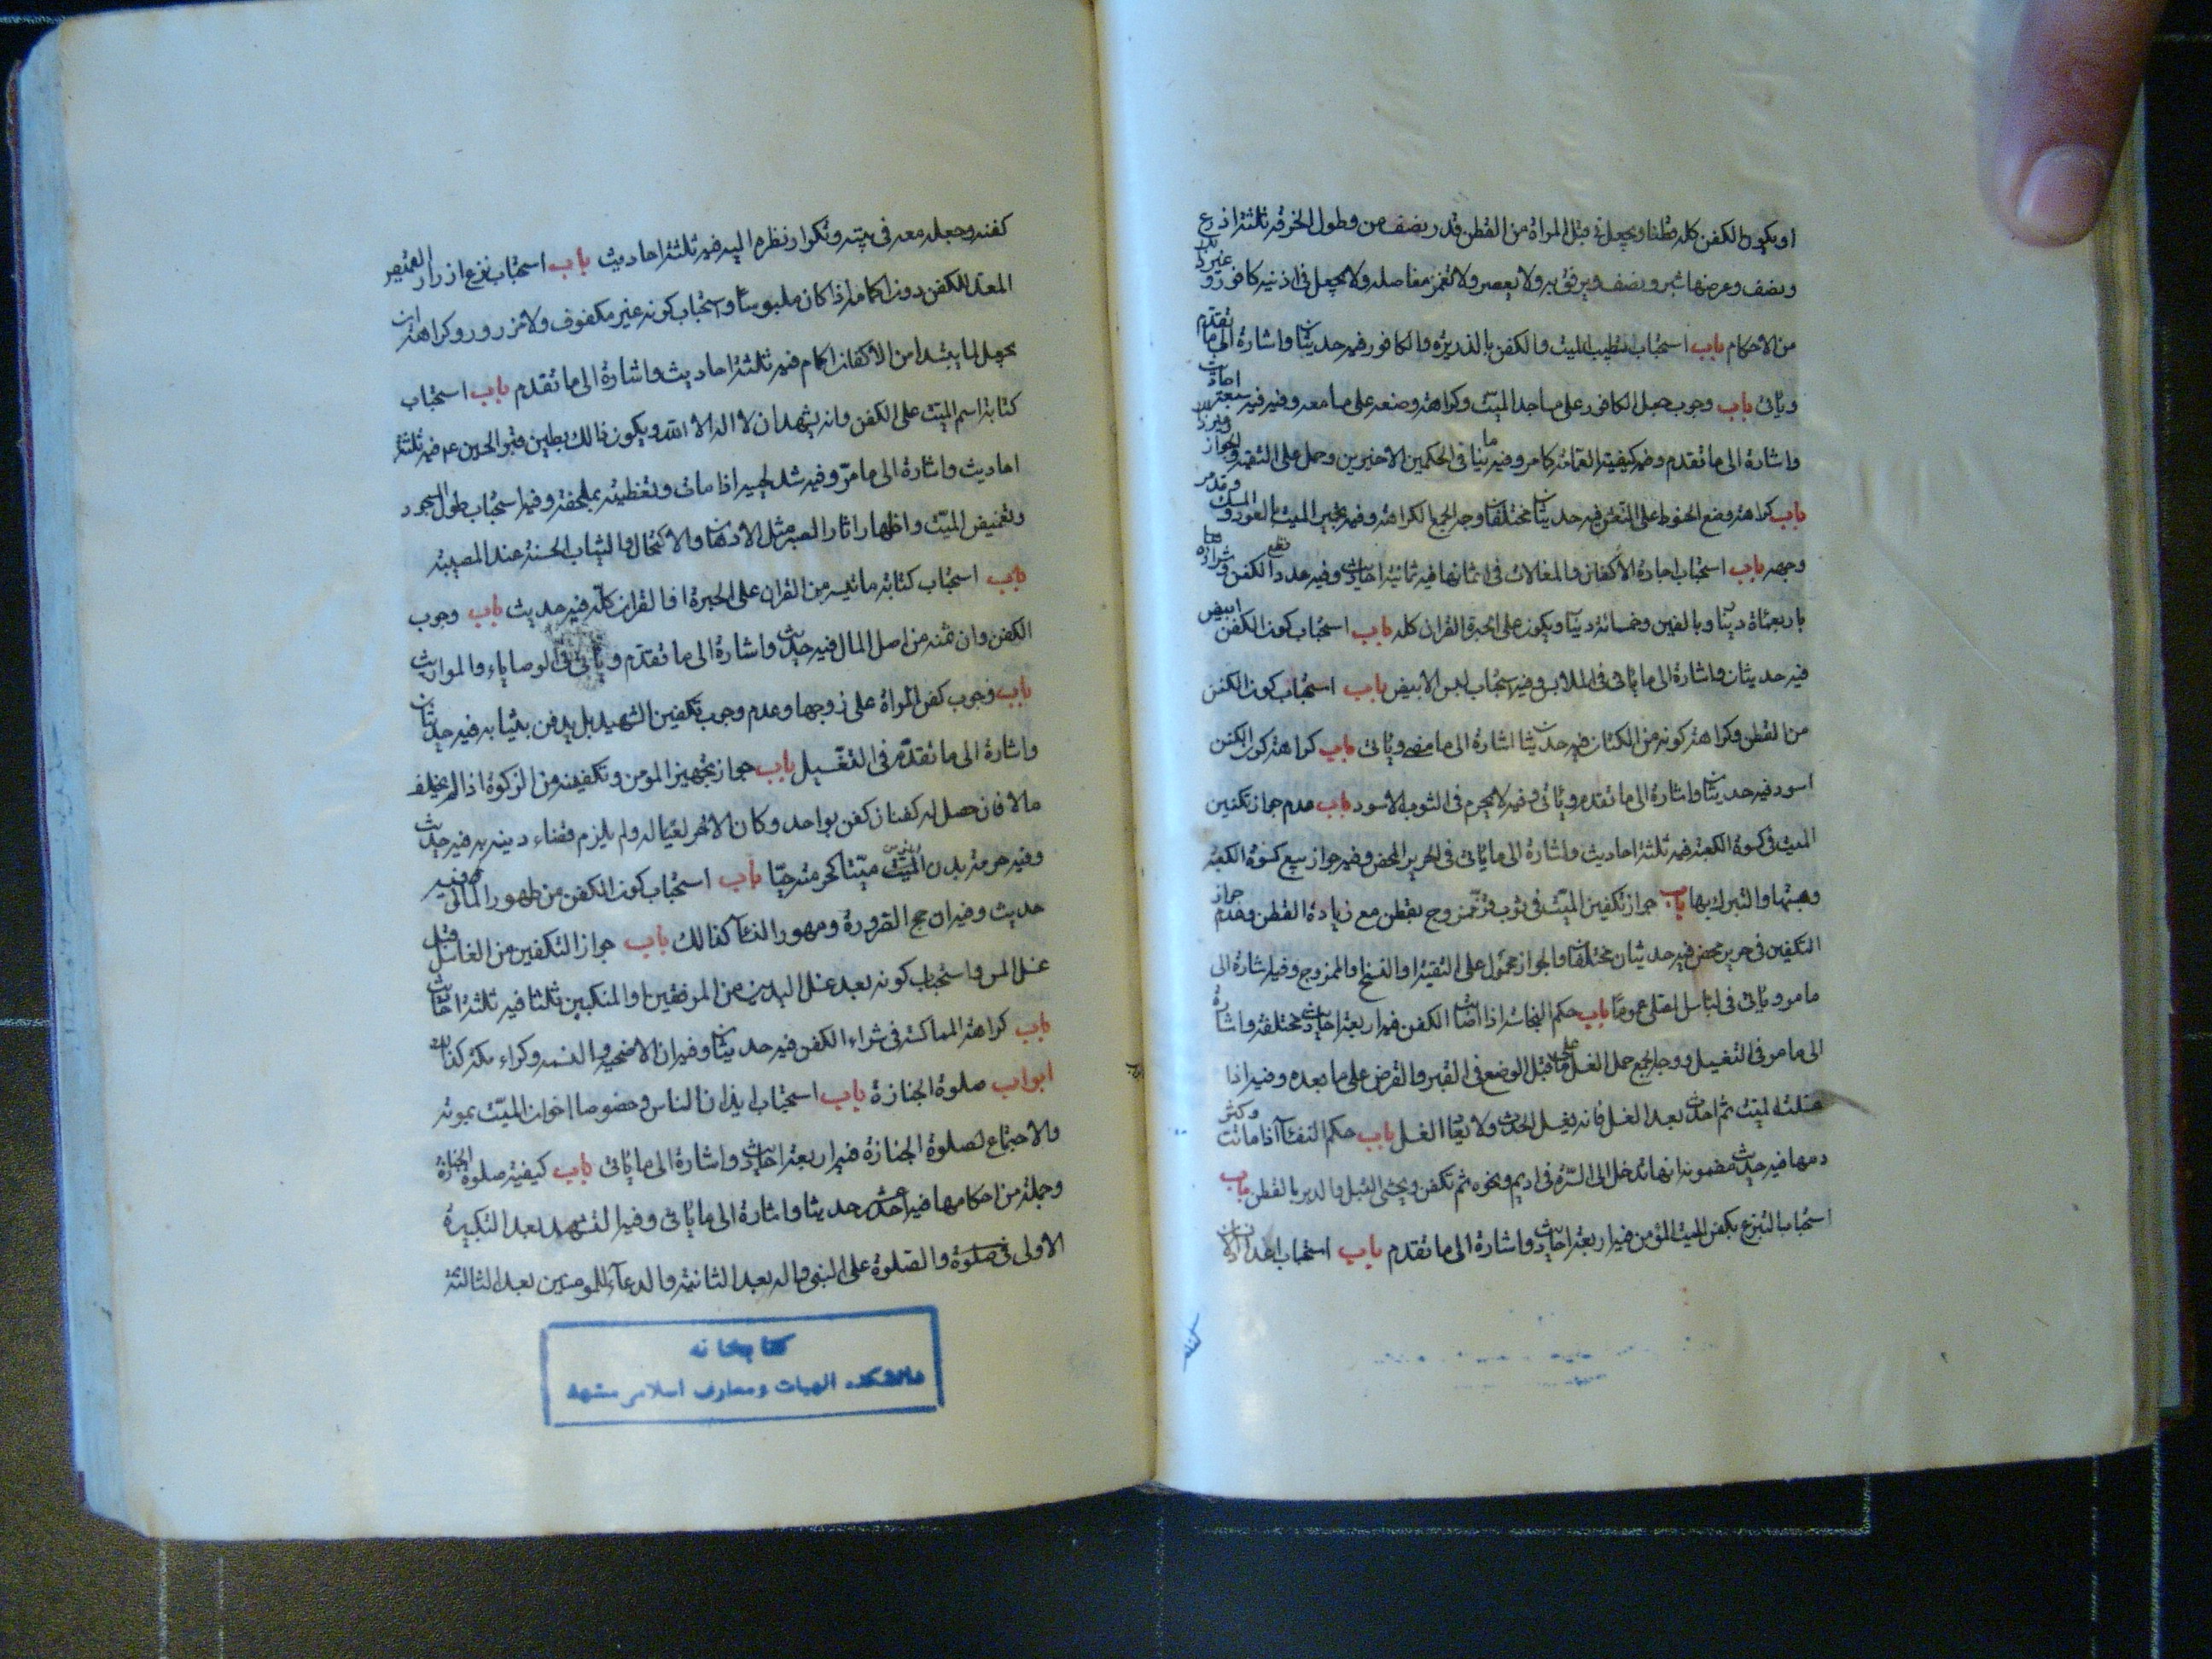 او يكون الكفن كله قطنا ويجعل في قبل المراة من القطن قدر نصف من وطول الخرقة ثلثة اذرع
ونصف وعرضها شبر ونصف ويرفق به ولا يعصر ولا تغمز مفاصله ولا يجعل في اذنيه كافور وغير ذلك
من الاحكام باب استحباب تطييب الميت والكفن بالذريرة والكافور فيه حديثان واشارة الى ما تقدم
ويأتي باب وجوب جعل الكافور على مساجد الميت وكراهة وضعه على مسامعه وفيه فيه سبعة احاديث
واشارة الى ما تقدم وفيه كيفية العمامة كما مر وفيه ما ينافي الحكمين الاخيرين وحمل على التقية والجواز وغير ذلك
باب كراهة وضع الحنوط على النعش فيه حديثان مختلفان وجه الجمع الكراهة وفيه تجمير الميت بالعود والمسك وقد مر
وجهه باب استحباب اجادة الاكفان والمغالات في اثمانها فيه ثمانية احاديث وفيه حدد الكفن وشراؤه
باربعمائة دينار وبالفين وخمسائة دينار ويكون على الحبرة القران كله باب استحباب كون الكفن ابيض
فيه حديثان واشارة الى ما يأتي في الملابس وفيه استحباب لبس الابيض باب استحباب كون الكفن
من القطن وكراهة كونه من الكتان فيه حديثان اشارة الى ما مضى ويأتي باب كراهة كون الكفن
اسود فيه حديثان واشارة الى ما تقدم ويأتي وفيه لا يحرم في الثوب الاسود باب عدم جواز تكفين
الميت في كسوة الكعبة فيه ثلثة احاديث واشارة الى ما يأتي في الحرير المحض وفيه جواز بيع كسوة الكعبة
وهبتها والتبرك بها باب جواز تكفين الميت في ثوب قز ممزوج بقطن مع زيادة القطن وعدم جواز
التكفين في حرير محض فيه حديثان مختلفان والجواز محمول على التقية او النسخ والممزوج وفيه اشارة الى
ما مر ويأتي في لباس المصلي عموما باب حكم النجاسة اذا اصابت الكفن فيه اربعة احاديث مختلفة واشارة
الى ما مر في التغسيل ووجه الجمع حمل الغسل على ما قبل الوضع في القبر والقرض على ما بعده وفيه اذا
غسلته الميت ثم احدث بعد الغسل فانه يغسل الحدث ولا يعاد الغسل باب حكم النفساء اذا ماتت وكثر
دمها فيه حديث مضمونه انها تدخل الى السرة في اديم ونحوه ثم تكفن ويحشى القبل والدبر بالقطن باب
استحباب التبرع بكفن الميت المؤمن فيه اربعة احاديث واشارة الى ما تقدم باب استحباب اعداد الانسان
كفنه وجعله معه في بيته وتكرار نظره اليه فيه ثلثة احاديث باب استحباب نزع ازرار القميص
المعد للكفن دون اكمامه اذا كان ملبوسا واستحباب كونه غير مكفوف ولا مزرور وكراهة ان
يجعل لما يبتدا من الاكفان اكمام فيه ثلثة احاديث واشارة الى ما تقدم باب استحباب
كتابة اسم الميت على الكفن وانه يشهد ان لا اله الا الله ويكون ذلك بطين قبر الحسين عم فيه ثلثة
احاديث واشارة الى ما مر وفيه شد لحييه اذا مات وتغطيته بملحفة وفيه استحباب طول السجود
وتغميض الميت واظهار اثار الصبر مثل الادهان والاكتحال والثياب الحسنة عند المصيبة
باب استحباب كتابة ما تيسر من القران على الحبرة او القران كله فيه حديث باب وجوب
الكفن وان ثمنه من اصل المال فيه حديث واشارة الى ما تقدم ويأتي في الوصايا والمواريث
باب وجوب كفن المراة على زوجها وعدم وجوب تكفين الشهيد بل يدفن بثيابه فيه حديثان
واشارة الى ما تقدم في التغسيل باب جواز تجهيز المومن وتكفينه من الزكوة اذا لم يخلف
مالا فان حصل له كفنان كفن بواحد وكان الاخر لعياله ولم يلزم قضاء دينه به فيه حديث
وفيه حرمة بدن المؤمن الميت ميتا كحرمته حيا باب استحباب كون الكفن من طهور المال فيه
حديث وفيه ان حج الصرورة ومهور النساء كذلك باب جواز التكفين من الغاسل قبل
غسل المس واستحباب كونه بعد غسل اليدين من المرفقين او المنكبين ثلثا فيه ثلثة احاديث
باب كراهة المماكسة في شراء الكفن فيه حديثان وفيه ان الاضحية والنسمة وكراء مكة كذلك
ابواب صلوة الجنازة باب استحباب ايذان الناس وخصوصا اخوان الميت بموته
والاجتماع لصلوة الجنازة فيه اربعة احاديث واشارة الى ما يأتي باب كيفية صلوة الجنازة
وجملة من احكامها فيه احد عشر حديثا واشارة الى ما يأتي وفيه التشهد بعد التكبيرة
الاولى في صلوة والصلوة على النبي واله بعد الثانية والدعاء للمومنين بعد الثالثة
كتابخانه
دانشكده الهيات ومعارف اسلامى مشهد